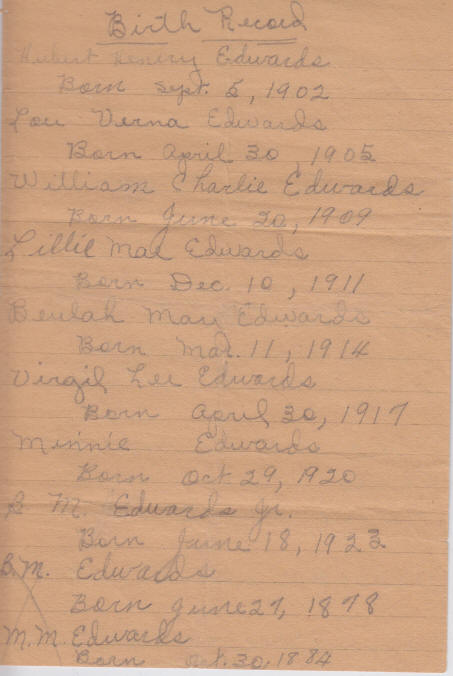 Birth Record
Hubert Henry Edwards
Born Sept. 5, 1902
Lou Verna Edwards
Born April 30, 1905
William Charlie Edwards
Born June 20, 1909
Lillie Mae Edwards
Born Dec. 10, 1911
Beulah May Edwards
Born Mar. 11, 1914
Virgil Lee Edwards
Born April 30, 1917
Minnie Edwards
Born Oct 29, 1920
B M. Edwards Jr.
Born June 18, 1923
B.M. Edwards
Born June 27, 1878
M.M. Edwards
Born Oct. 30, 1884